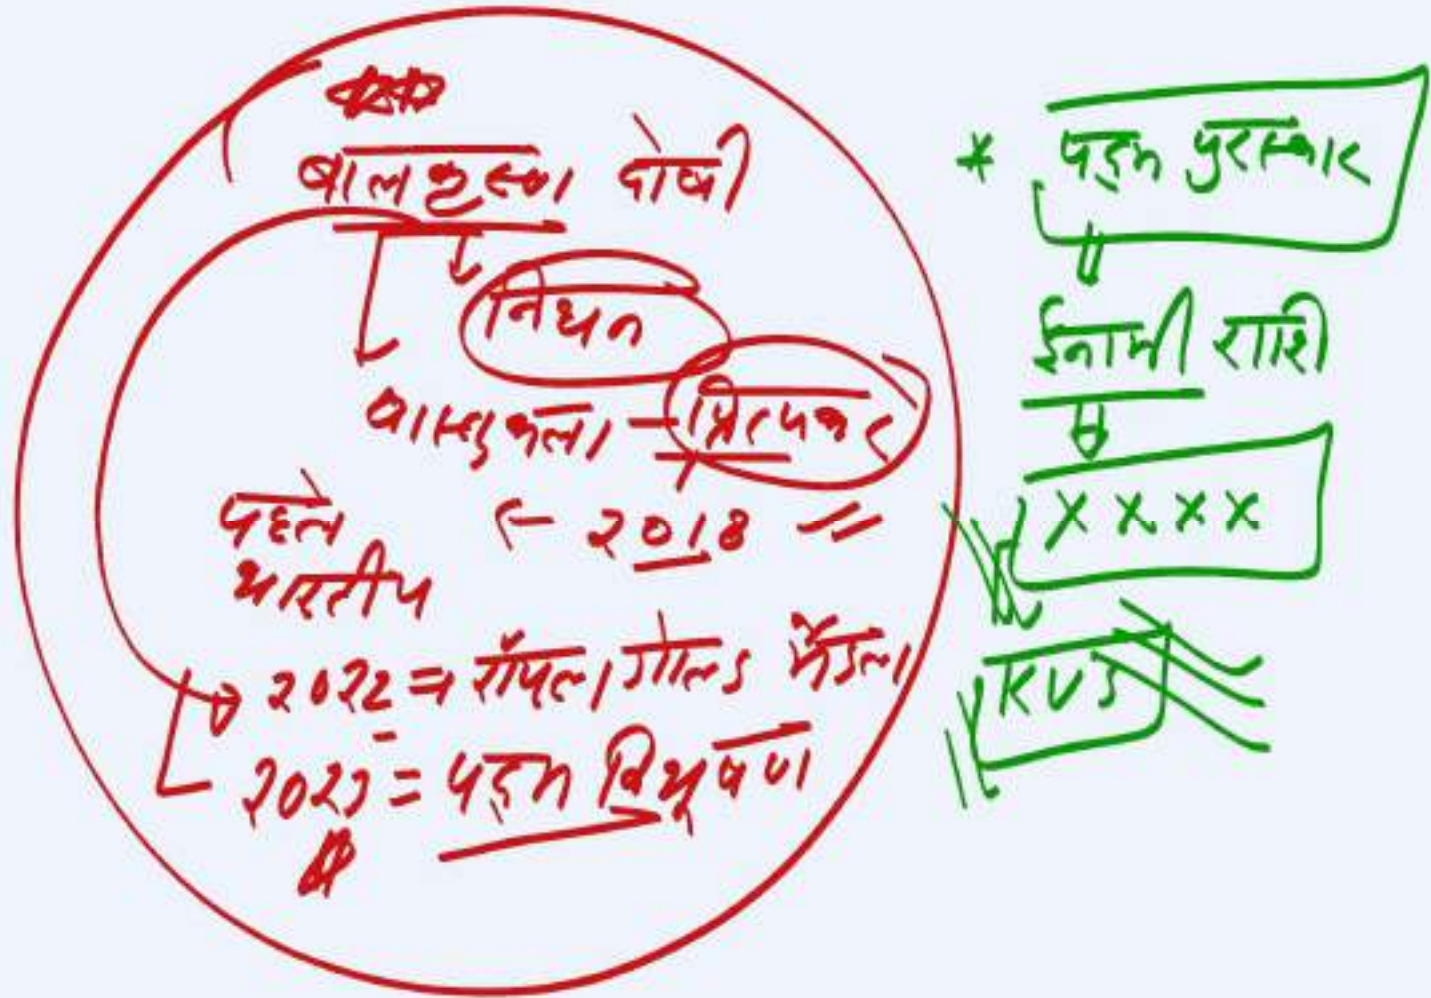 बालकृष्ण दोषी
निधन
वास्तुकला - प्रित्यकर
← 2018
पहले
भारतीय
2022 = रॉयल गोल्ड मेडल
2023 = पद्म विभूषण
* पद्म पुरस्कार
ईनामी राशि
X X X X
KVS